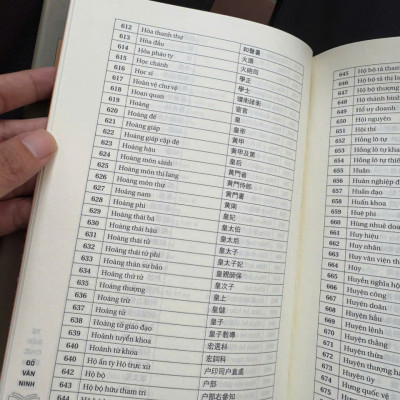 612 Hòa thanh thự 和聲署
613 Hỏa đầu 火頭
614 Hỏa pháo ty 火砲司
615 Học chánh 學正
616 Học sĩ 學士
617 Hoàn vệ chư vệ 環衛諸衛
618 Hoạn quan 宦官
619 Hoàng 皇
620 Hoàng đế 皇帝
621 Hoàng giáp 黃甲
622 Hoàng giáp cập đệ 黃甲及第
623 Hoàng hậu 皇后
624 Hoàng môn sảnh 黃門省
625 Hoàng môn thị lang 黃門侍郎
626 Hoàng môn thự 黃門署
627 Hoàng nam 黃南
628 Hoàng phi 皇妃
629 Hoàng thái bá 皇太伯
630 Hoàng thái hậu 皇太后
631 Hoàng thái tử 皇太子
632 Hoàng thái phi 皇太子妃
633 Hoàng thân sư bảo 皇親師保
634 Hoàng thứ tử 皇次子
635 Hoàng thượng 皇上
636 Hoàng trừ 皇儲
637 Hoàng tử 皇子
638 Hoàng tử giáo đạo 皇子教導
639 Hoành tuyển khoa 宏選科
640 Hoành từ khoa 宏詞科
640 Hộ ấn ty Hộ trực xứ 户印司户直處
642 Hộ bộ 户部
643 Hộ bộ hữu tham tri 户部右參知
644
ĐỖ
VĂN
NINH
645 Hộ bộ tả tham
646 Hộ bộ tả thị la
647 Hộ bộ thượng
648 Hộ thành binh
649 Hồ uy doanh
650 Hội nguyên
651 Hội thí
652 Hồng lô tự
653 Hồng lô tự khan
654 Hồng lô tự thiế
655 Huấn
656 Huấn đạo
656 Huân nghiệp đ
657 Huấn khoa
658 Huệ phi
659 Hùng nhuệ doan
660 Huy hiệu
661 Huy nhân
662 Huy văn viện th
663 Húy
664 Huyền nghĩa hộ
665 Huyện công
666 Huyện đoàn
667 Huyện hầu
668 Huyện lệnh
669 Huyện thằng
670
671 Huyện thừa
672 Huyện thượng
673 Huyện úy
674 Hưng quốc vệ